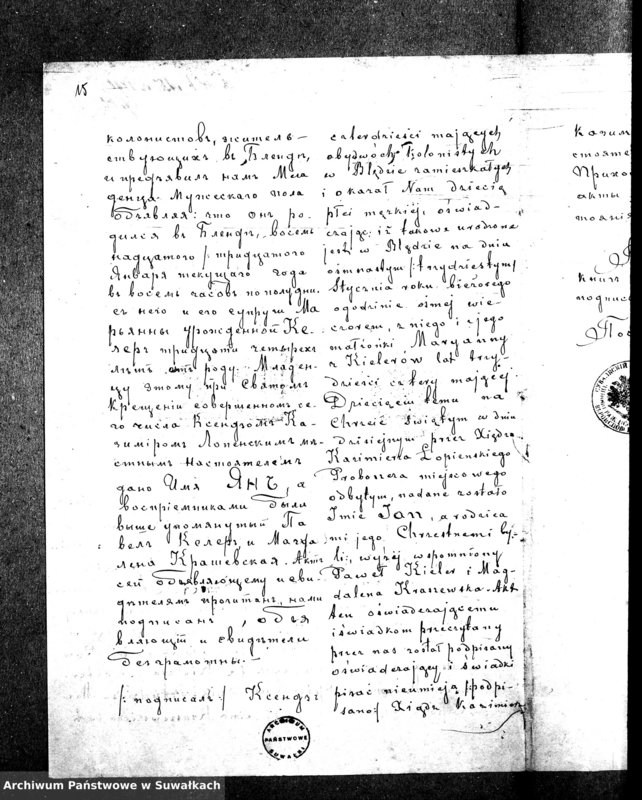 15
колонистовъ, житель-
ствующихъ въ Блендѣ,
и предъявилъ намъ Мла
денца Мужескаго пола
объявляя: что онъ ро-
дился въ Блендѣ, восем
надцатого /: тридцатого
Января текущаго года
въ восемь часовъ пополудни,
съ него и его супруги Ма
рьянны урожденной Ке-
леръ тридцати четырехъ
лѣтъ отъ роду. Младен-
цу этому при Святомъ
Крещеніи совершенномъ се-
го числа Ксендзомъ Ка-
зиміромъ Лопенскимъ мѣ-
стнымъ Настоятелемъ
дано Имя ЯНЪ, а
воспріемниками были
выше упомянутый Па
велъ Келеръ и Магда
лена Крашевская. Актъ
сей объявляющему и сви-
дѣтелямъ прочитанъ, нами
подписанъ, объя
вляющій и свидѣтели
безграмотны.-
/: подписалъ :/ Ксендзъ
czterdzieści mających
obydwóch Kolonistych
w Błędzie zamieszkałych
i okazał Nam dziecię
płci męzkiéj, oświad-
czając; iż takowe urodzone
jest w Błędzie na dniu
ośmnastym /: trzydziestym/
Stycznia roku bieżącego
o godzinie ósmej wie-
czorem, z niego i jego
małżonki Maryanny
z Kielerów lat trzy-
dzieści cztery mającej
Dziecięciu temu na
Chrzcie Świętym w dniu
dzisiejszym przez Xiędza
Kazimierza Łopienskiego
Proboszcza miejscowego
odbytym, nadane zostało
Imie Jan, a rodzica
mi jego Chrzestnemi by-
li: wyżéj wspomniony
Paweł Kieler i Mag-
dalena Kraszewska. Akt
ten oświadczającemu
i świadkom przeczytany
przez nas został podpisany
oświadczający i świadki
pisać nieumieją /: podpi-
sano :/ Xiądz Kazimierz
Казим
стояте
Прихо
акты
книгъ
подпис
ARCHIWUM
PAŃSTWOWE
SUWAŁKI
Archiwum Państwowe w Suwałkach